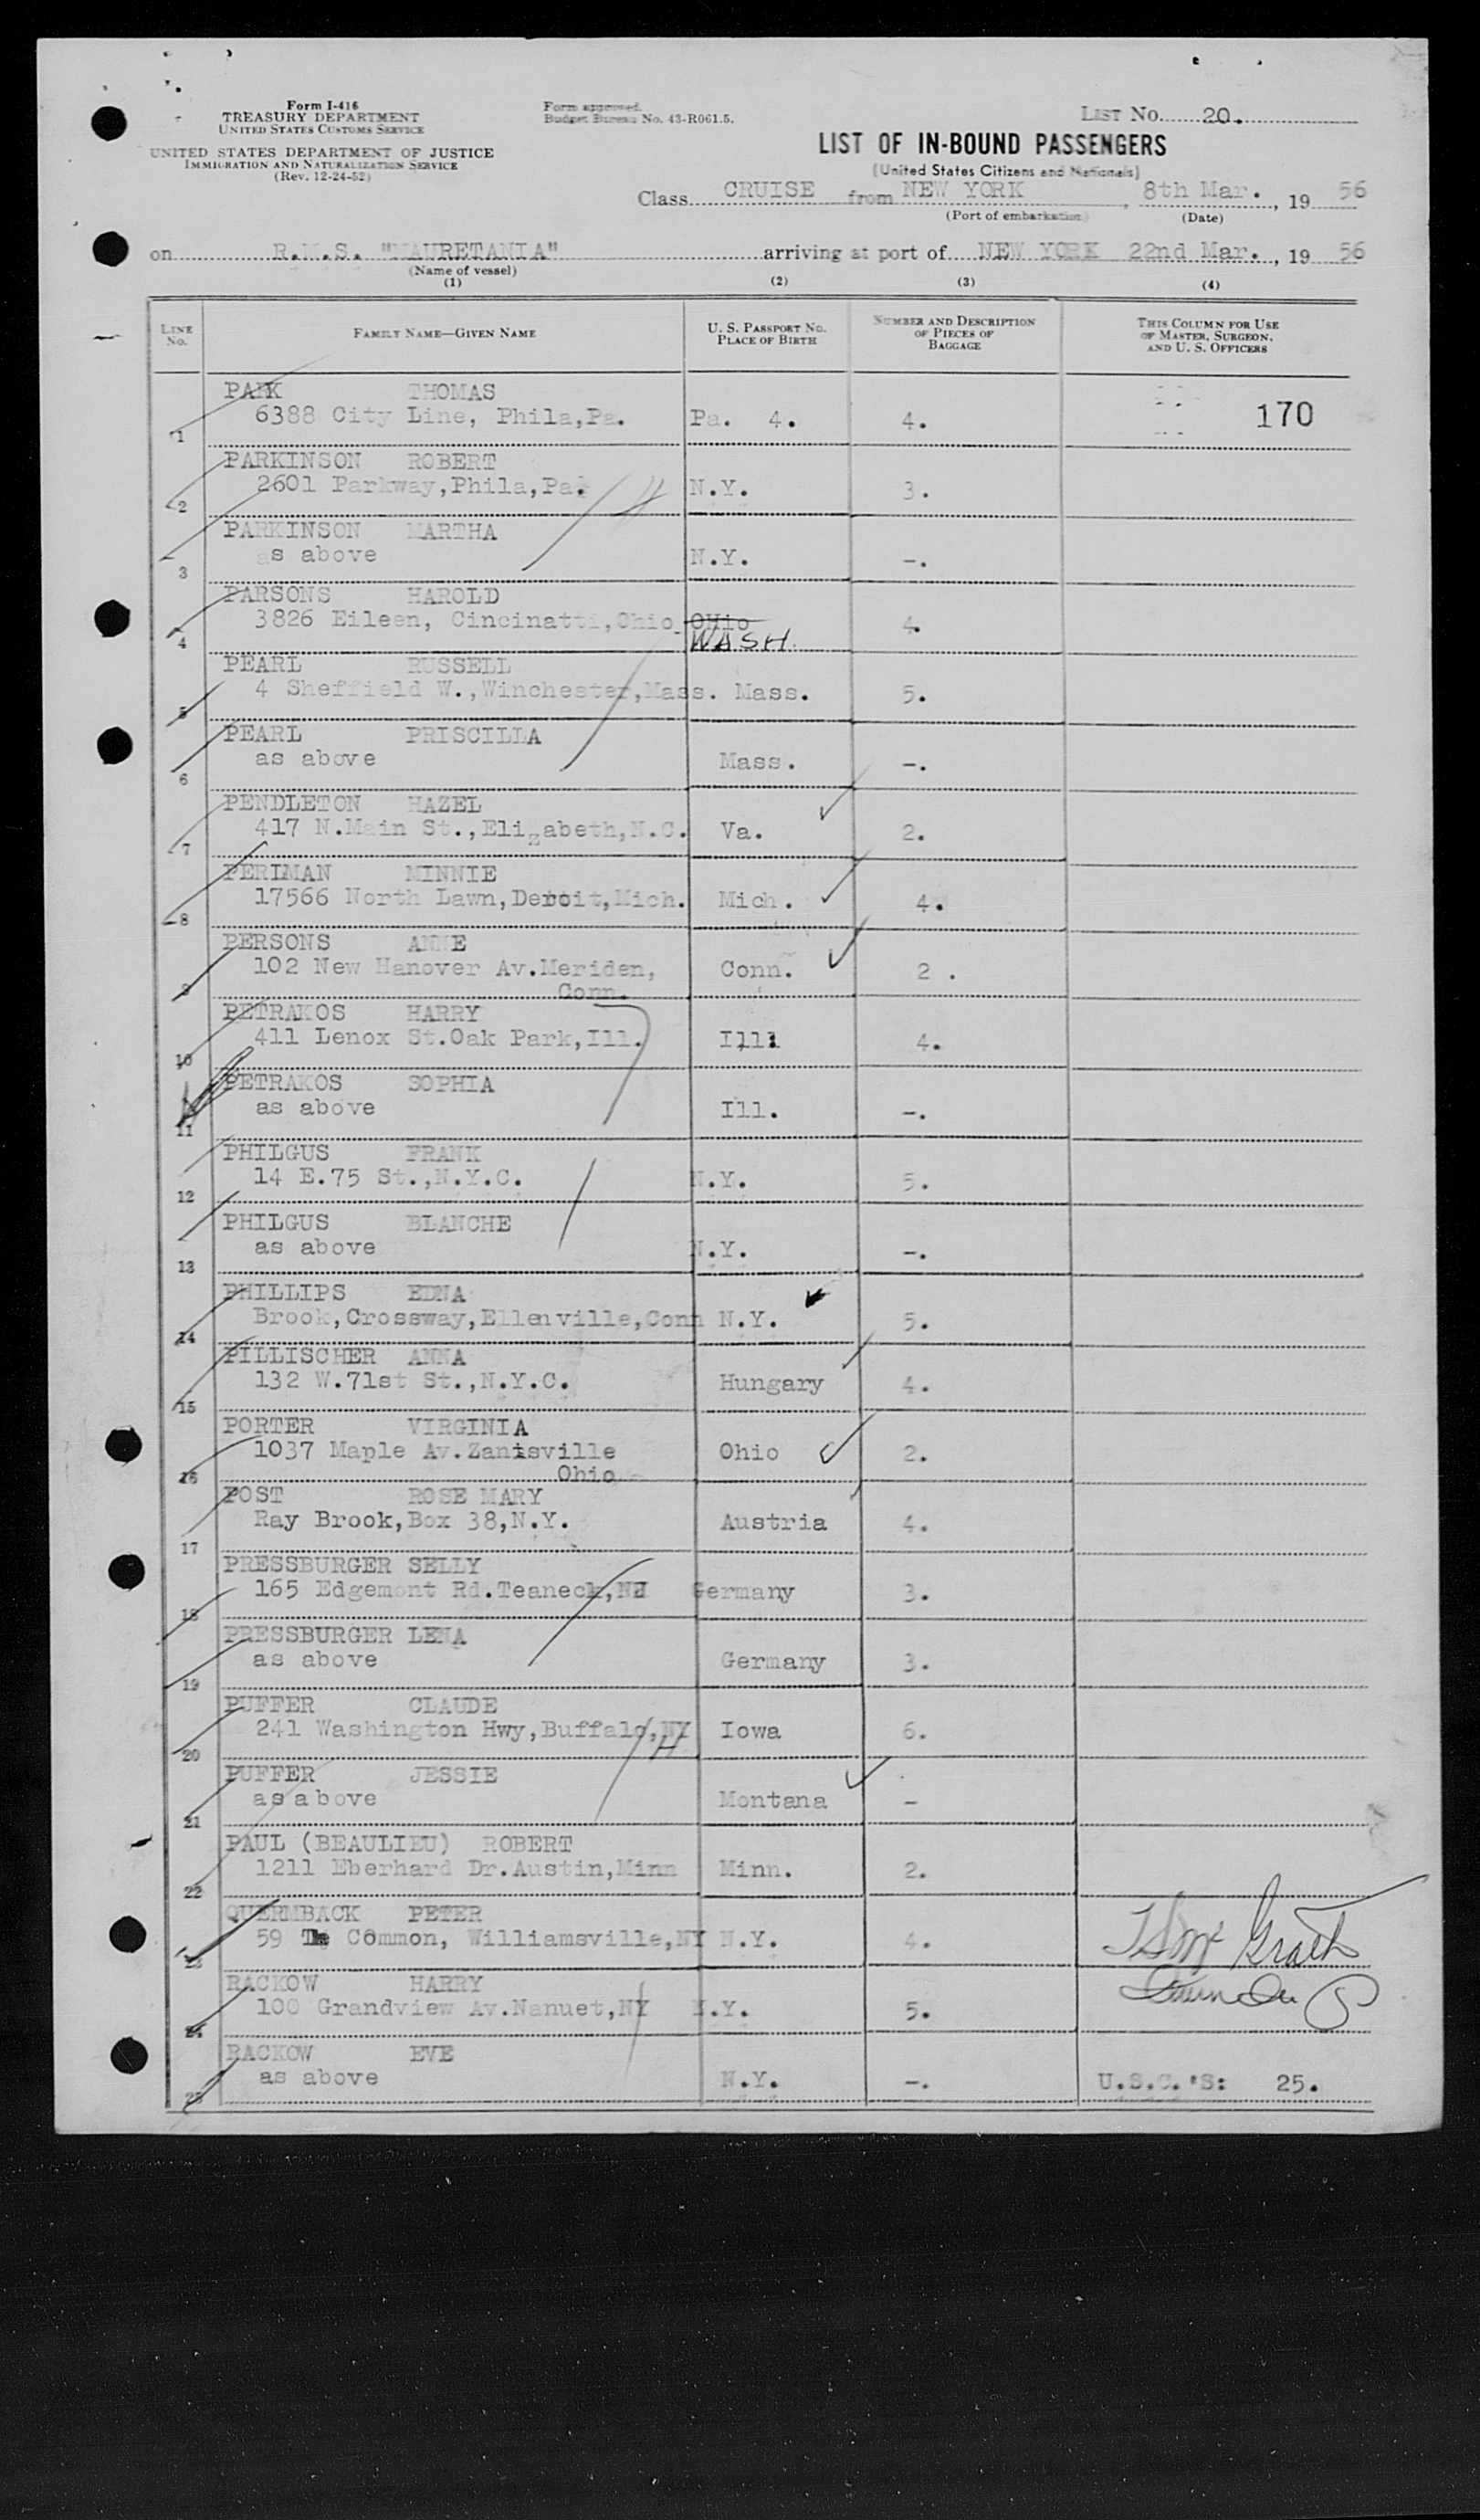 Form I-416
TREASURY DEPARTMENT
UNITED STATES CUSTOMS SERVICE
UNITED STATES DEPARTMENT OF JUSTICE
IMMIGRATION AND NATURALIZATION SERVICE
(Rev. 12-24-52)
Form approved.
Budget Bureau No. 43-R061.5.
LIST No. 20.
LIST OF IN-BOUND PASSENGERS
(United States Citizens and Nationals)
Class CRUISE from NEW YORK, 8th Mar., 19 56
(Port of embarkation) (Date)
on R.M.S. "MAURETANIA" arriving at port of NEW YORK 22nd Mar., 19 56
(Name of vessel)
(1) (2) (3) (4)
LINE No. FAMILY NAME—GIVEN NAME U. S. PASSPORT NO. PLACE OF BIRTH NUMBER AND DESCRIPTION OF PIECES OF BAGGAGE THIS COLUMN FOR USE OF MASTER, SURGEON, AND U. S. OFFICERS
PARK THOMAS
1 6388 City Line, Phila,Pa. Pa. 4. 4. 170
PARKINSON ROBERT
2 2601 Parkway,Phila,Pa. N.Y. 3.
PARKINSON MARTHA
3 as above N.Y. -.
PARSONS HAROLD
4 3826 Eileen, Cincinatti,Ohio OHio 4.
WASH.
PEARL RUSSELL
5 4 Sheffield W.,Winchester,Mass. Mass. 5.
PEARL PRISCILLA
6 as above Mass. -.
PENDLETON HAZEL
7 417 N.Main St.,Elizabeth,N.C. Va. 2.
PERIMAN MINNIE
8 17566 North Lawn,Detroit,Mich. Mich. 4.
PERSONS ANNE
9 102 New Hanover Av.Meriden, Conn. 2 .
Conn.
PETRAKOS HARRY
10 411 Lenox St.Oak Park,Ill. Ill. 4.
PETRAKOS SOPHIA
11 as above Ill. -.
PHILGUS FRANK
12 14 E.75 St.,N.Y.C. N.Y. 5.
PHILGUS BLANCHE
13 as above N.Y. -.
PHILLIPS EDNA
14 Brook,Crossway,Ellenville,Conn N.Y. 5.
PILLISCHER ANNA
15 132 W.71st St.,N.Y.C. Hungary 4.
PORTER VIRGINIA
16 1037 Maple Av.Zanisville Ohio 2.
Ohio
POST ROSE MARY
17 Ray Brook,Box 38,N.Y. Austria 4.
PRESSBURGER SELLY
18 165 Edgemont Rd.Teaneck,NJ Germany 3.
PRESSBURGER LENA
19 as above Germany 3.
PUFFER CLAUDE
20 241 Washington Hwy,Buffalo,NY Iowa 6.
PUFFER JESSIE
21 as above Montana -
PAUL (BEAULIEU) ROBERT
22 1211 Eberhard Dr.Austin,Minn Minn. 2.
QUERMBACK PETER
23 59 The Common, Williamsville,NY N.Y. 4.
RACKOW HARRY
24 100 Grandview Av.Nanuet,NY N.Y. 5.
RACKOW EVE
25 as above N.Y. -. U.S.C.'S: 25.